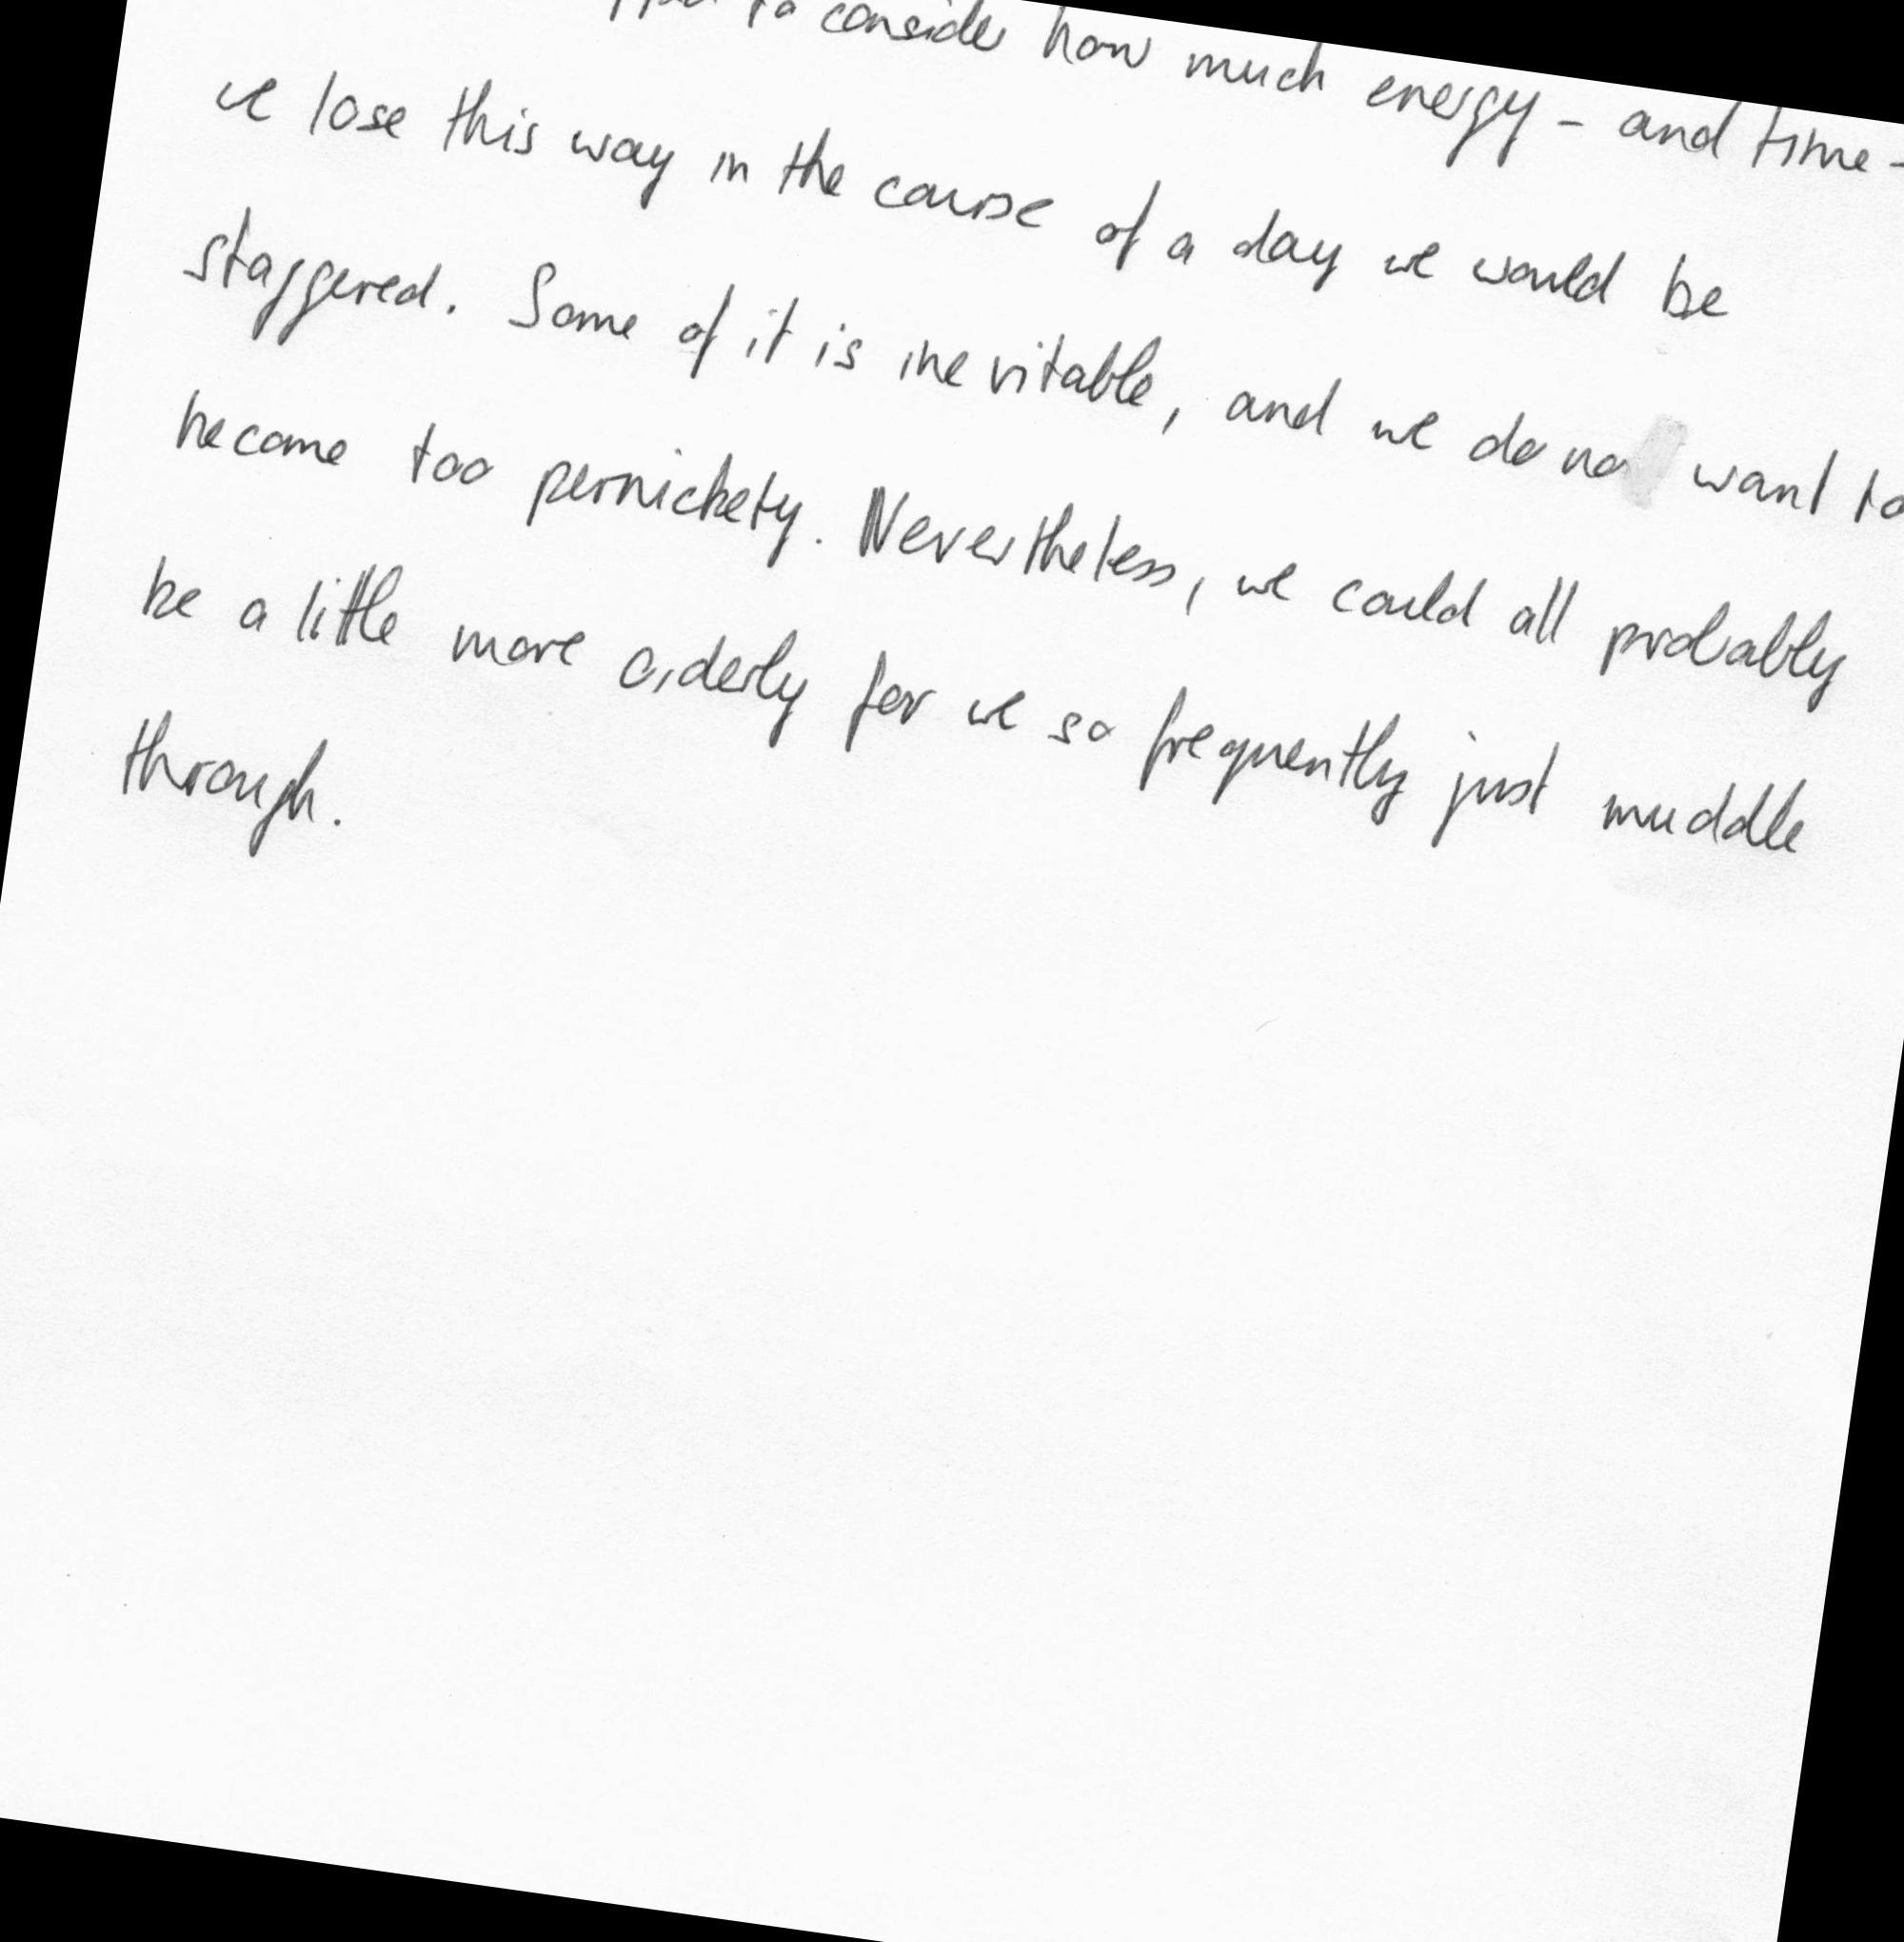 to consider how much energy - and time -
we lose this way in the course of a day we would be
staggered. Some of it is inevitable, and we do no want to
become too pernickety. Nevertheless, we could all probably
be a little more orderly for we so frequently just muddle
through.